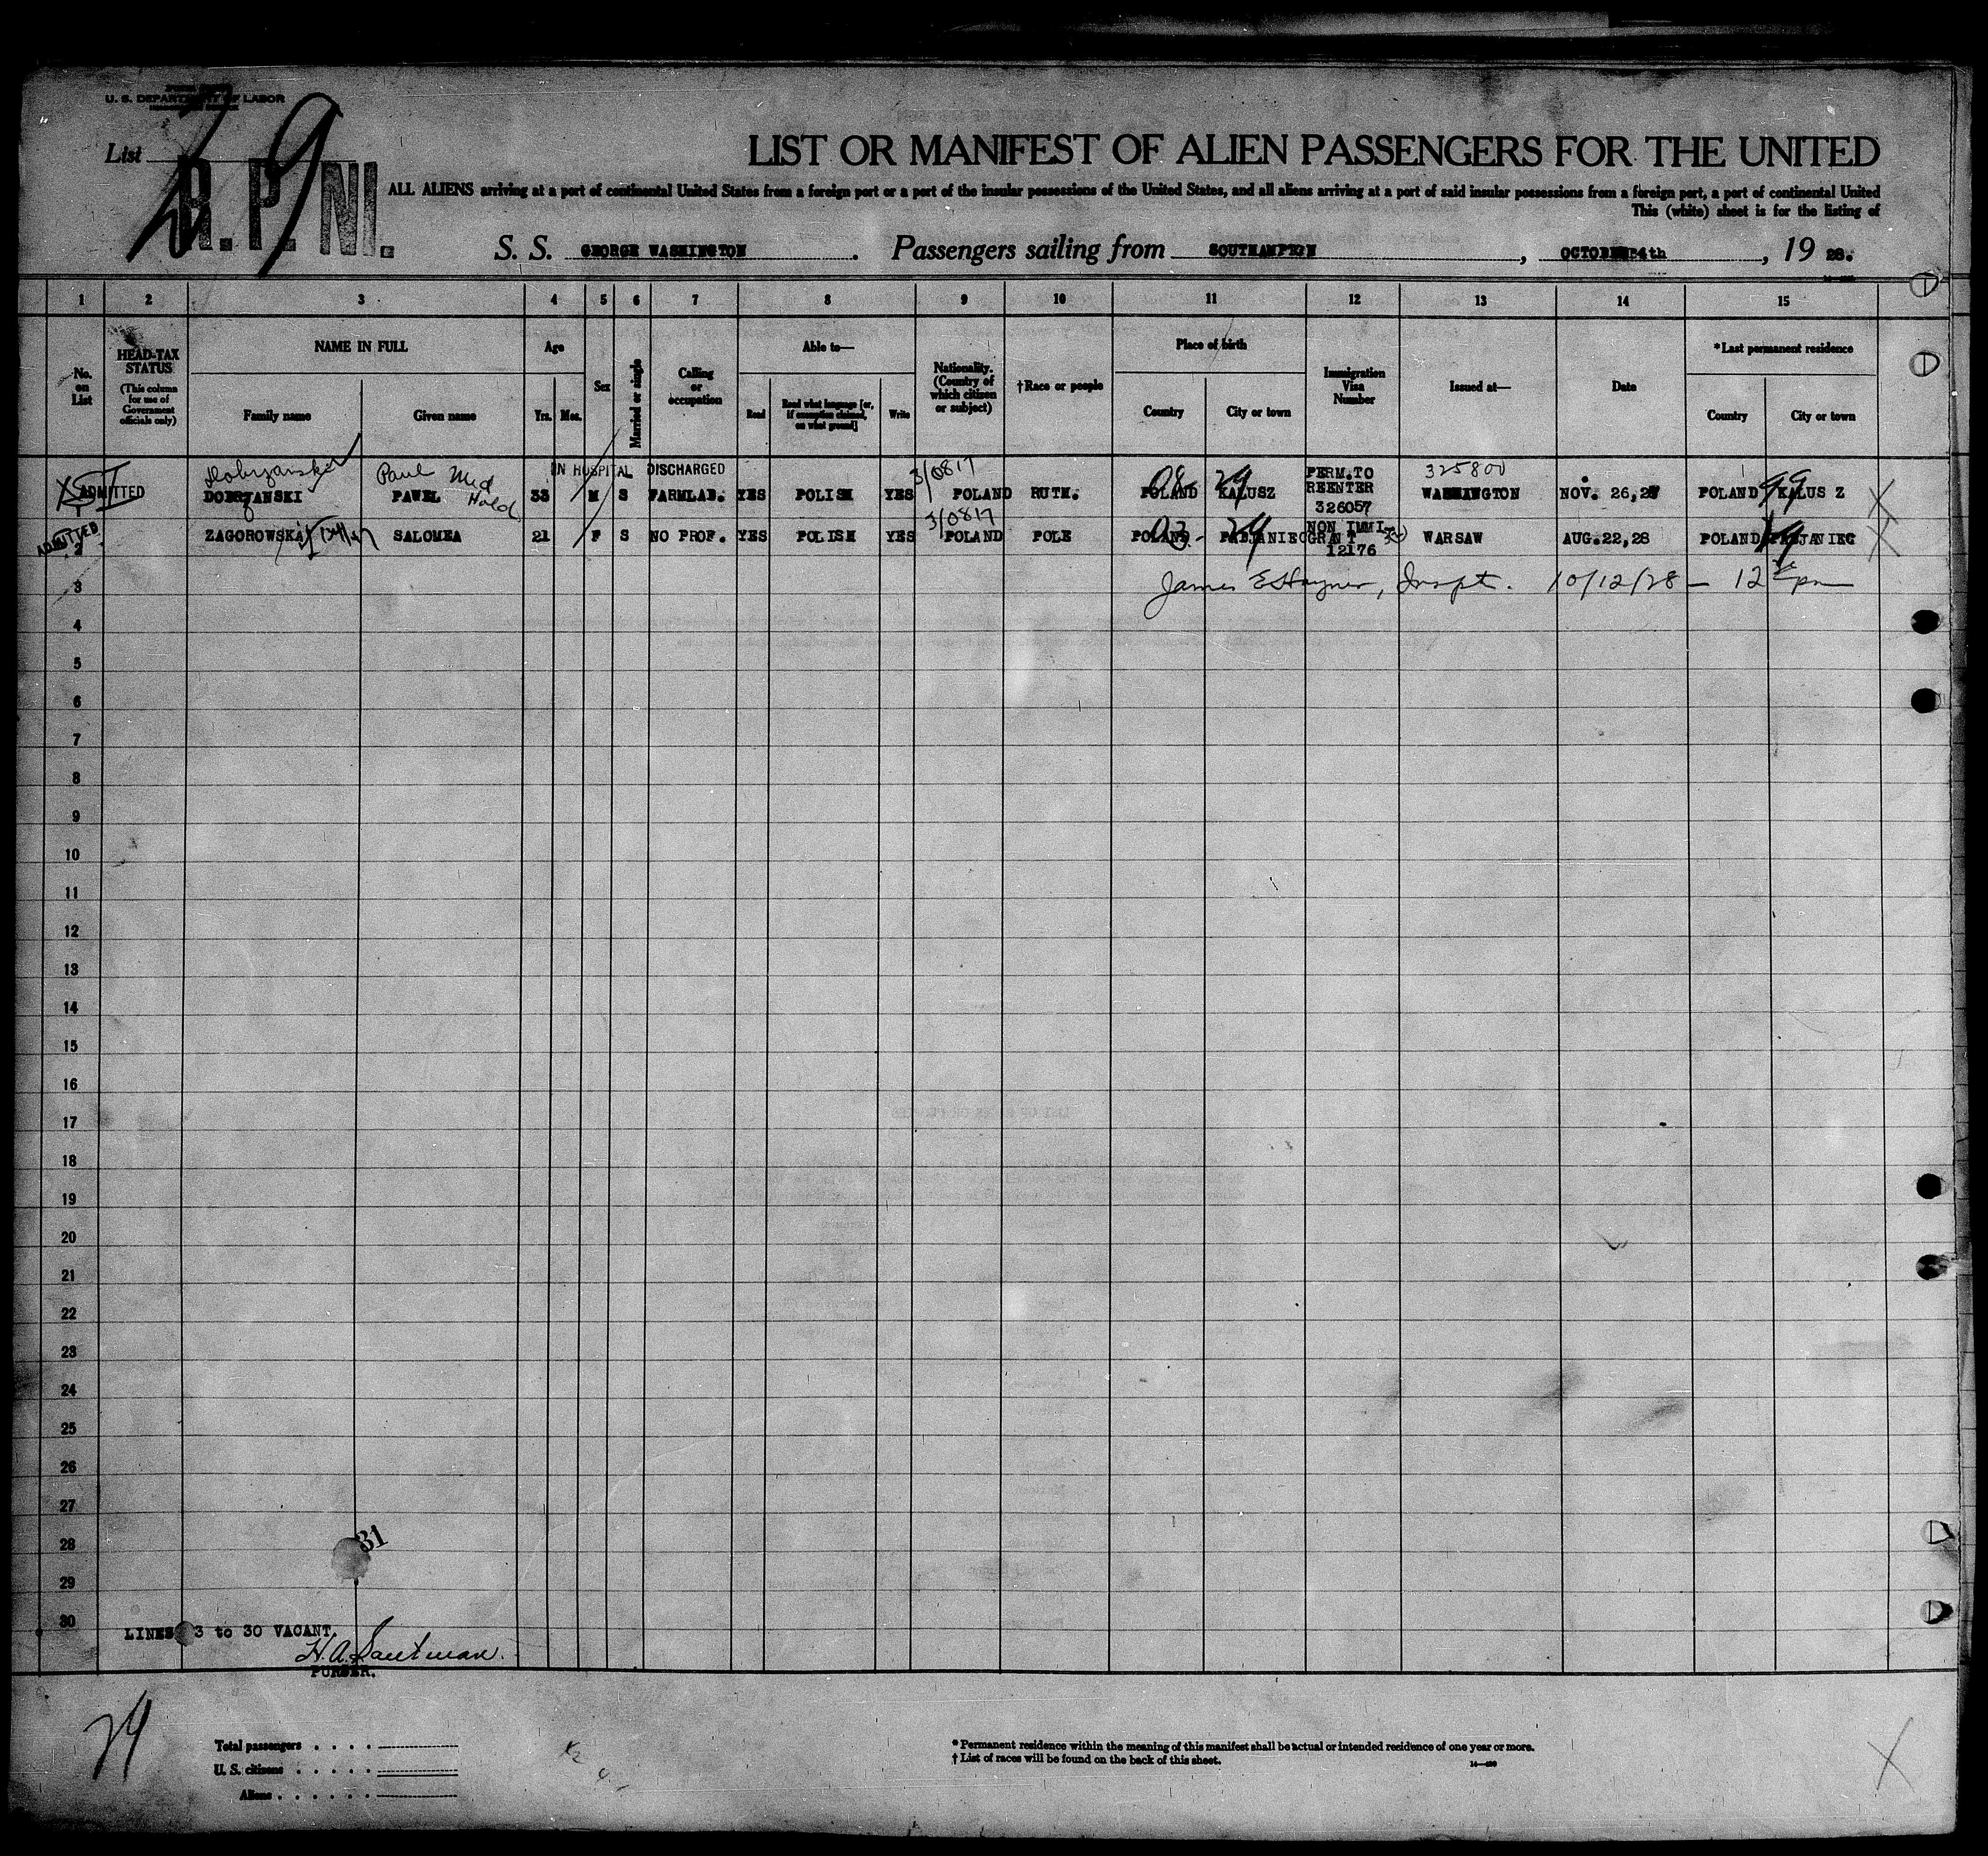 U. S. DEPARTMENT OF LABOR
List 29
R. P. NI.
LIST OR MANIFEST OF ALIEN PASSENGERS FOR THE UNITED
ALL ALIENS arriving at a port of continental United States from a foreign port or a port of the insular possessions of the United States, and all aliens arriving at a port of said insular possessions from a foreign port, a port of continental United
This (white) sheet is for the listing of
S. S. GEORGE WASHINGTON . Passengers sailing from SOUTHAMPTON , OCTOBER 4th , 19 28.
1 2 3 4 5 6 7 8 9 10 11 12 13 14 15
No. on List
HEAD-TAX STATUS (This column for use of Government officials only)
NAME IN FULL
Family name Given name
Age
Yrs. Mos.
Sex
Married or single
Calling or occupation
Able to—
Read Read what language [or, if exemption claimed, on what ground] Write
Nationality. (Country of which citizen or subject)
†Race or people
Place of birth
Country City or town
Immigration Visa Number
Issued at—
Date
*Last permanent residence
Country City or town
Dobrzanski Paul Med Hold IN HOSPITAL DISCHARGED 3/0817 PERM.TO 325800
ADMITTED DOBRZANSKI PAWEL 33 M S FARMLAB. YES POLISH YES POLAND RUTH. POLAND KALUSZ REENTER WASHINGTON NOV. 26,27 POLAND KALUS Z
08 29 326057 99
ADMITTED 2 ZAGOROWSKA SALOMEA 21 F S NO PROF. YES POLISH YES 3/0817 POLAND POLE POLAND PABJANIEC NON IMMI GRANT 12176 WARSAW AUG.22,28 POLAND PABJANIEC
03 29
3 James E Hayner, Inspt. 10/12/28 — 12 pm
4
5
6
7
8
9
10
11
12
13
14
15
16
17
18
19
20
21
22
23
24
25
26
27
28
29
30
31
LINES 3 to 30 VACANT.
H.A. Sautman.
PURSER.
29
Total passengers
U. S. citizens
Aliens
* Permanent residence within the meaning of this manifest shall be actual or intended residence of one year or more.
† List of races will be found on the back of this sheet.